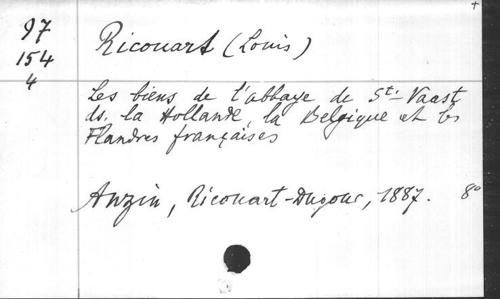 +
97
154
4
Ricouart (Louis)
Les biens de l'abbaye de St-Vaast
ds. la Hollande, la Belgique et les
Flandres françaises
Anzin, Ricouart-Dugour, 1887. 8°